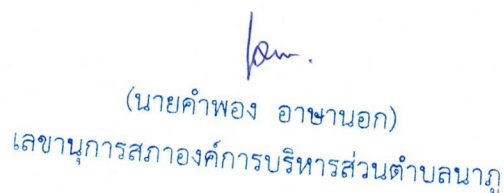 (นายคำพอง อาษานอก)
เลขานุการสภาองค์การบริหารส่วนตำบลนาภู